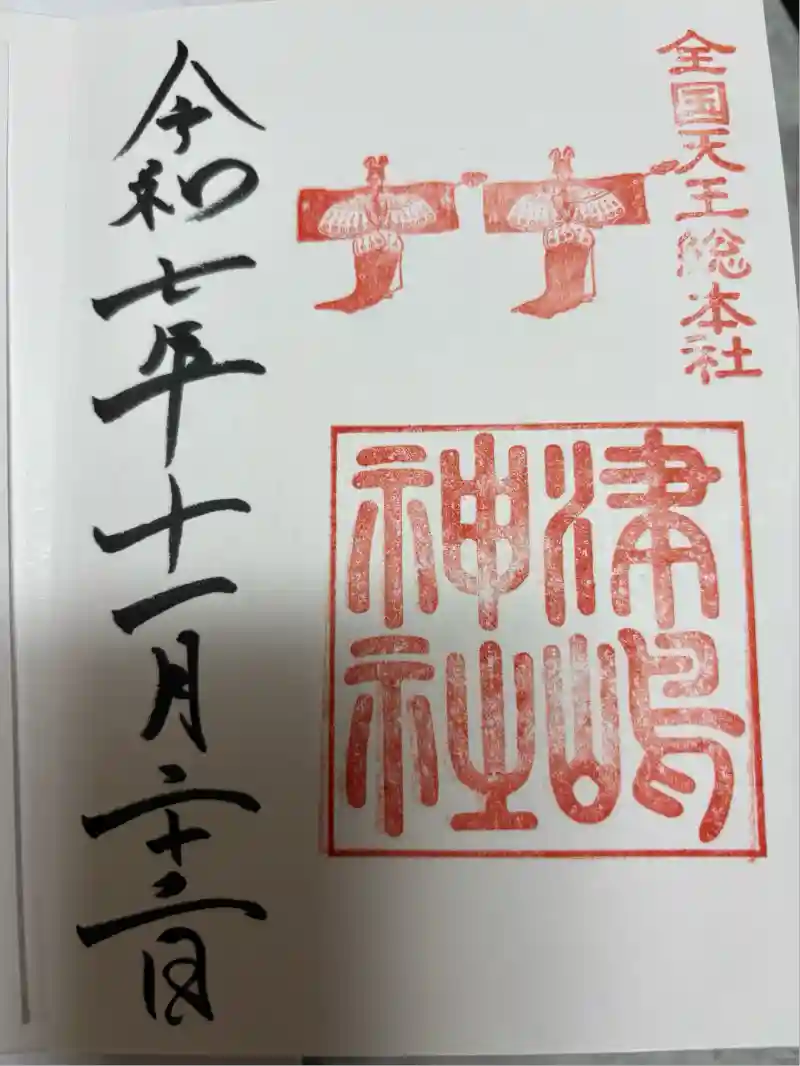 全国天王総本社
津嶋
神社
令和七年十一月二十二日